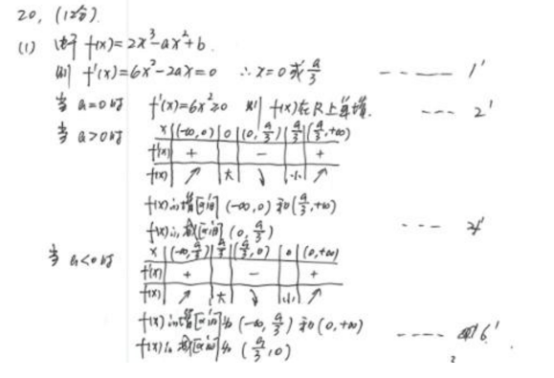 20, (12分)
(1) 由于 f(x)=2x³-ax²+b.
则 f'(x)=6x²-2ax=0 ∴x=0或a/3 ----- 1'
当 a=0时 f'(x)=6x²≥0 则 f(x)在R上单增. --- 2'
当 a>0时 x | (-∞,0) | 0 | (0, a/3) | a/3 | (a/3,+∞)
f'(x) | + | | - | | +
f(x) | ↗ | 大 | ↘ | 小 | ↗
f(x)的增区间 (-∞,0) 和(a/3,+∞)
f(x)的减区间 (0, a/3) --- 4'
当 a<0时 x | (-∞,a/3) | a/3 | (a/3,0) | 0 | (0,+∞)
f'(x) | + | | - | | +
f(x) | ↗ | 大 | ↘ | 小 | ↗
f(x)的增区间为 (-∞, a/3) 和(0,+∞)
---- 6'
f(x)的减区间为 (a/3,0)
2